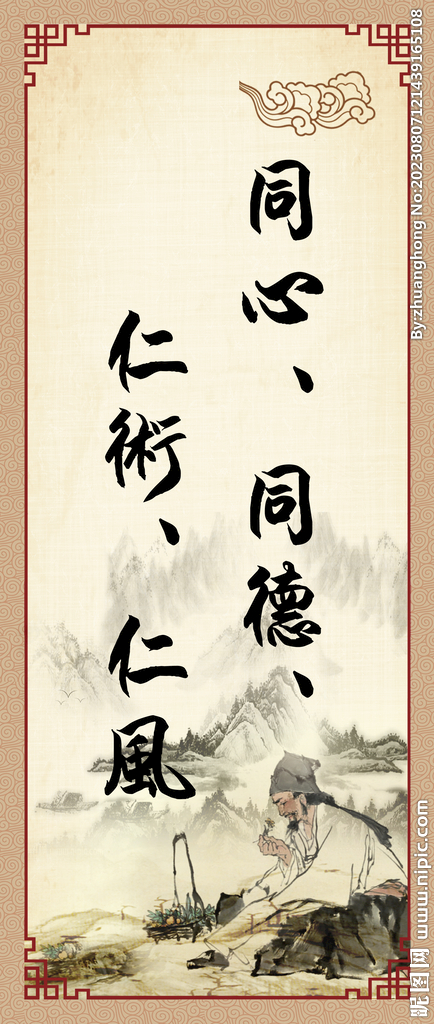 同心、同德、
仁術、仁風
By:zhuanghong No:20230807121439165108
昵图网 www.nipic.com